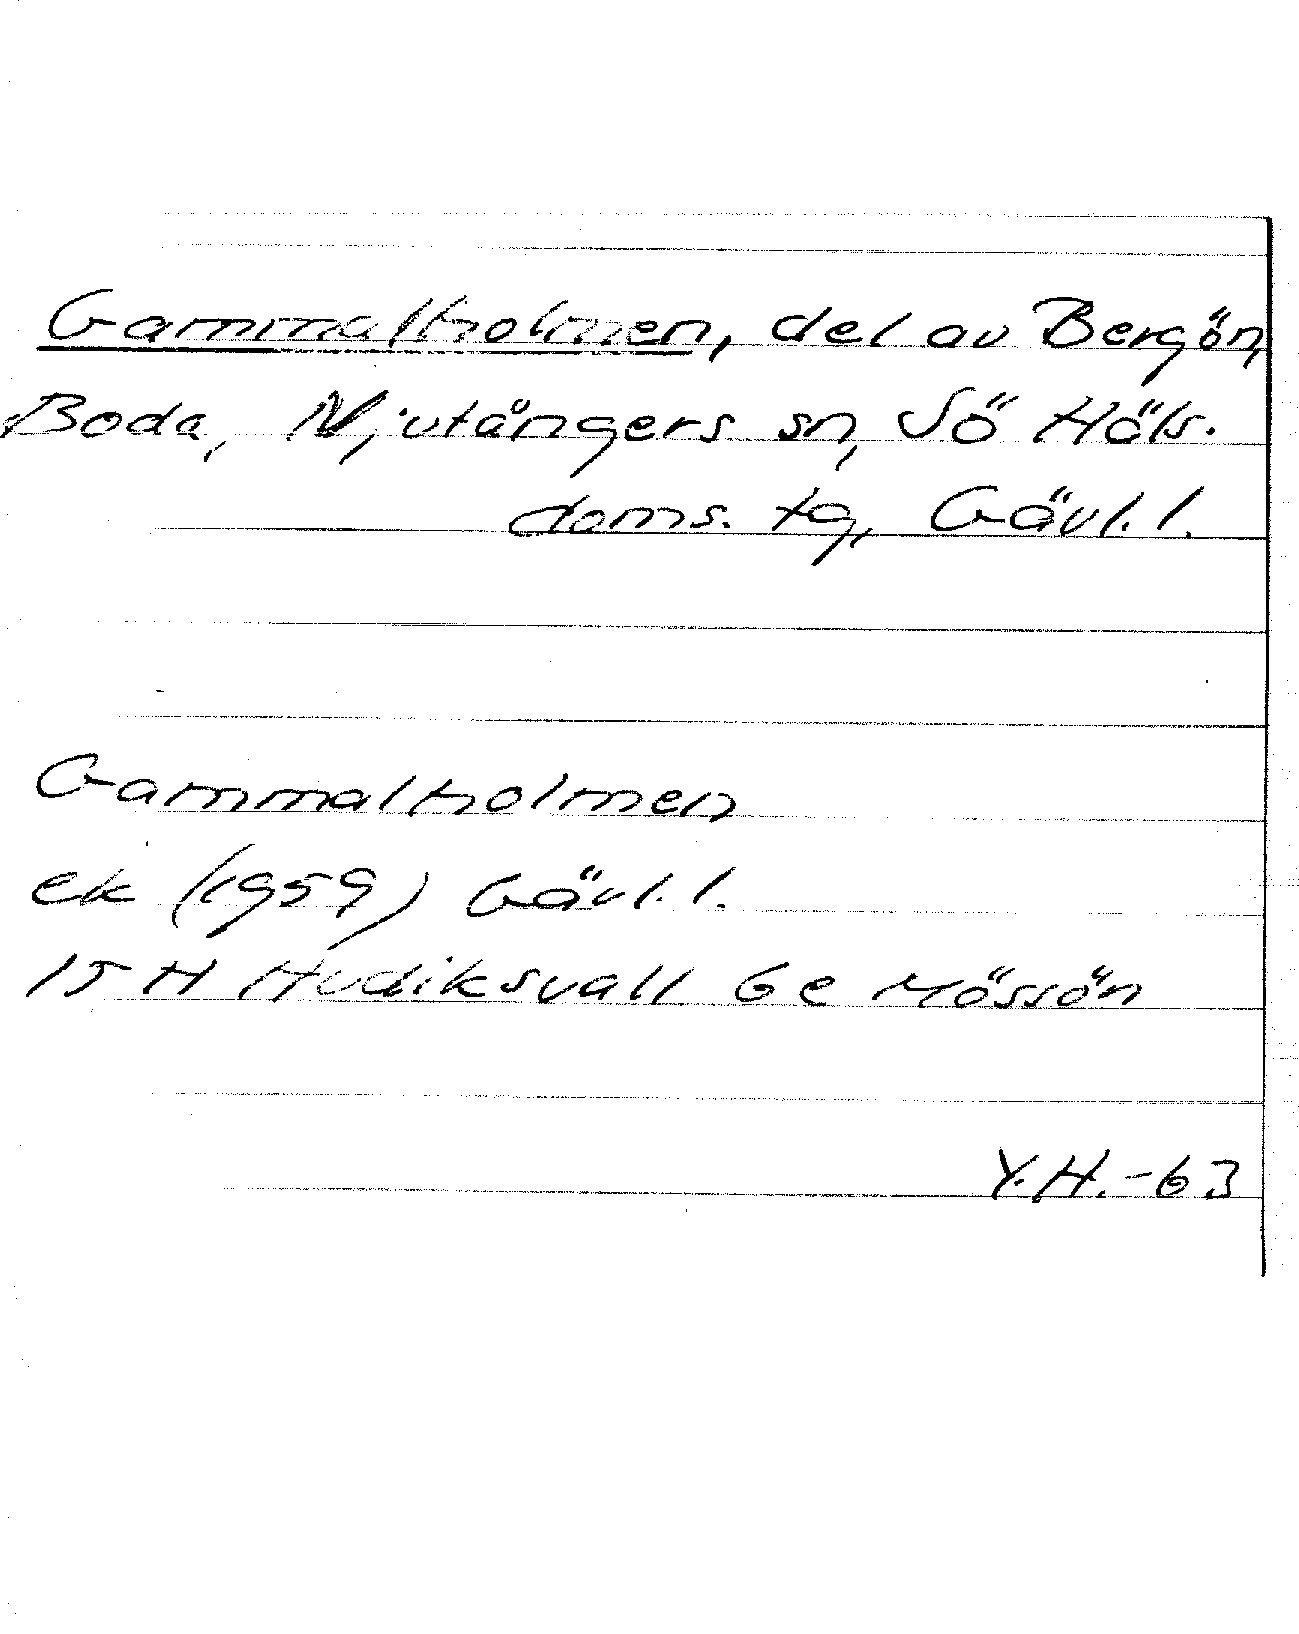 Gammalholmen, del av Bergön,
Boda, Njutångers sn, Sö Häls.
doms. tg, Gävl. l.
Gammalholmen
ek (1959) Gävl. l.
15 H Hudiksvall 6 e Mössön
Y.H.-63